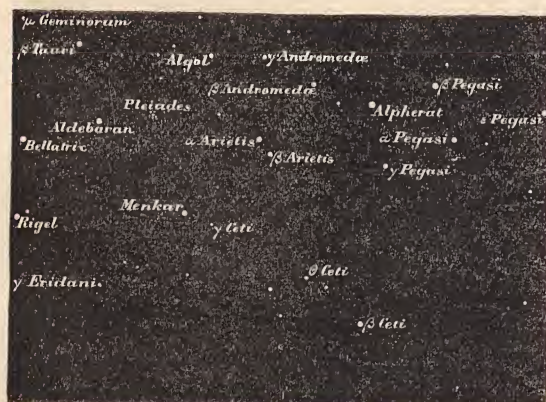 μ Geminorum
β Tauri
Algol
γ Andromedæ
β Andromedæ
β Pegasi
Pleiades
Alpherat
ε Pegasi
Aldebaran
Bellatrix
α Arietis
α Pegasi
β Arietis
γ Pegasi
Menkar
Rigel
γ Ceti
θ Ceti
γ Eridani
β Ceti